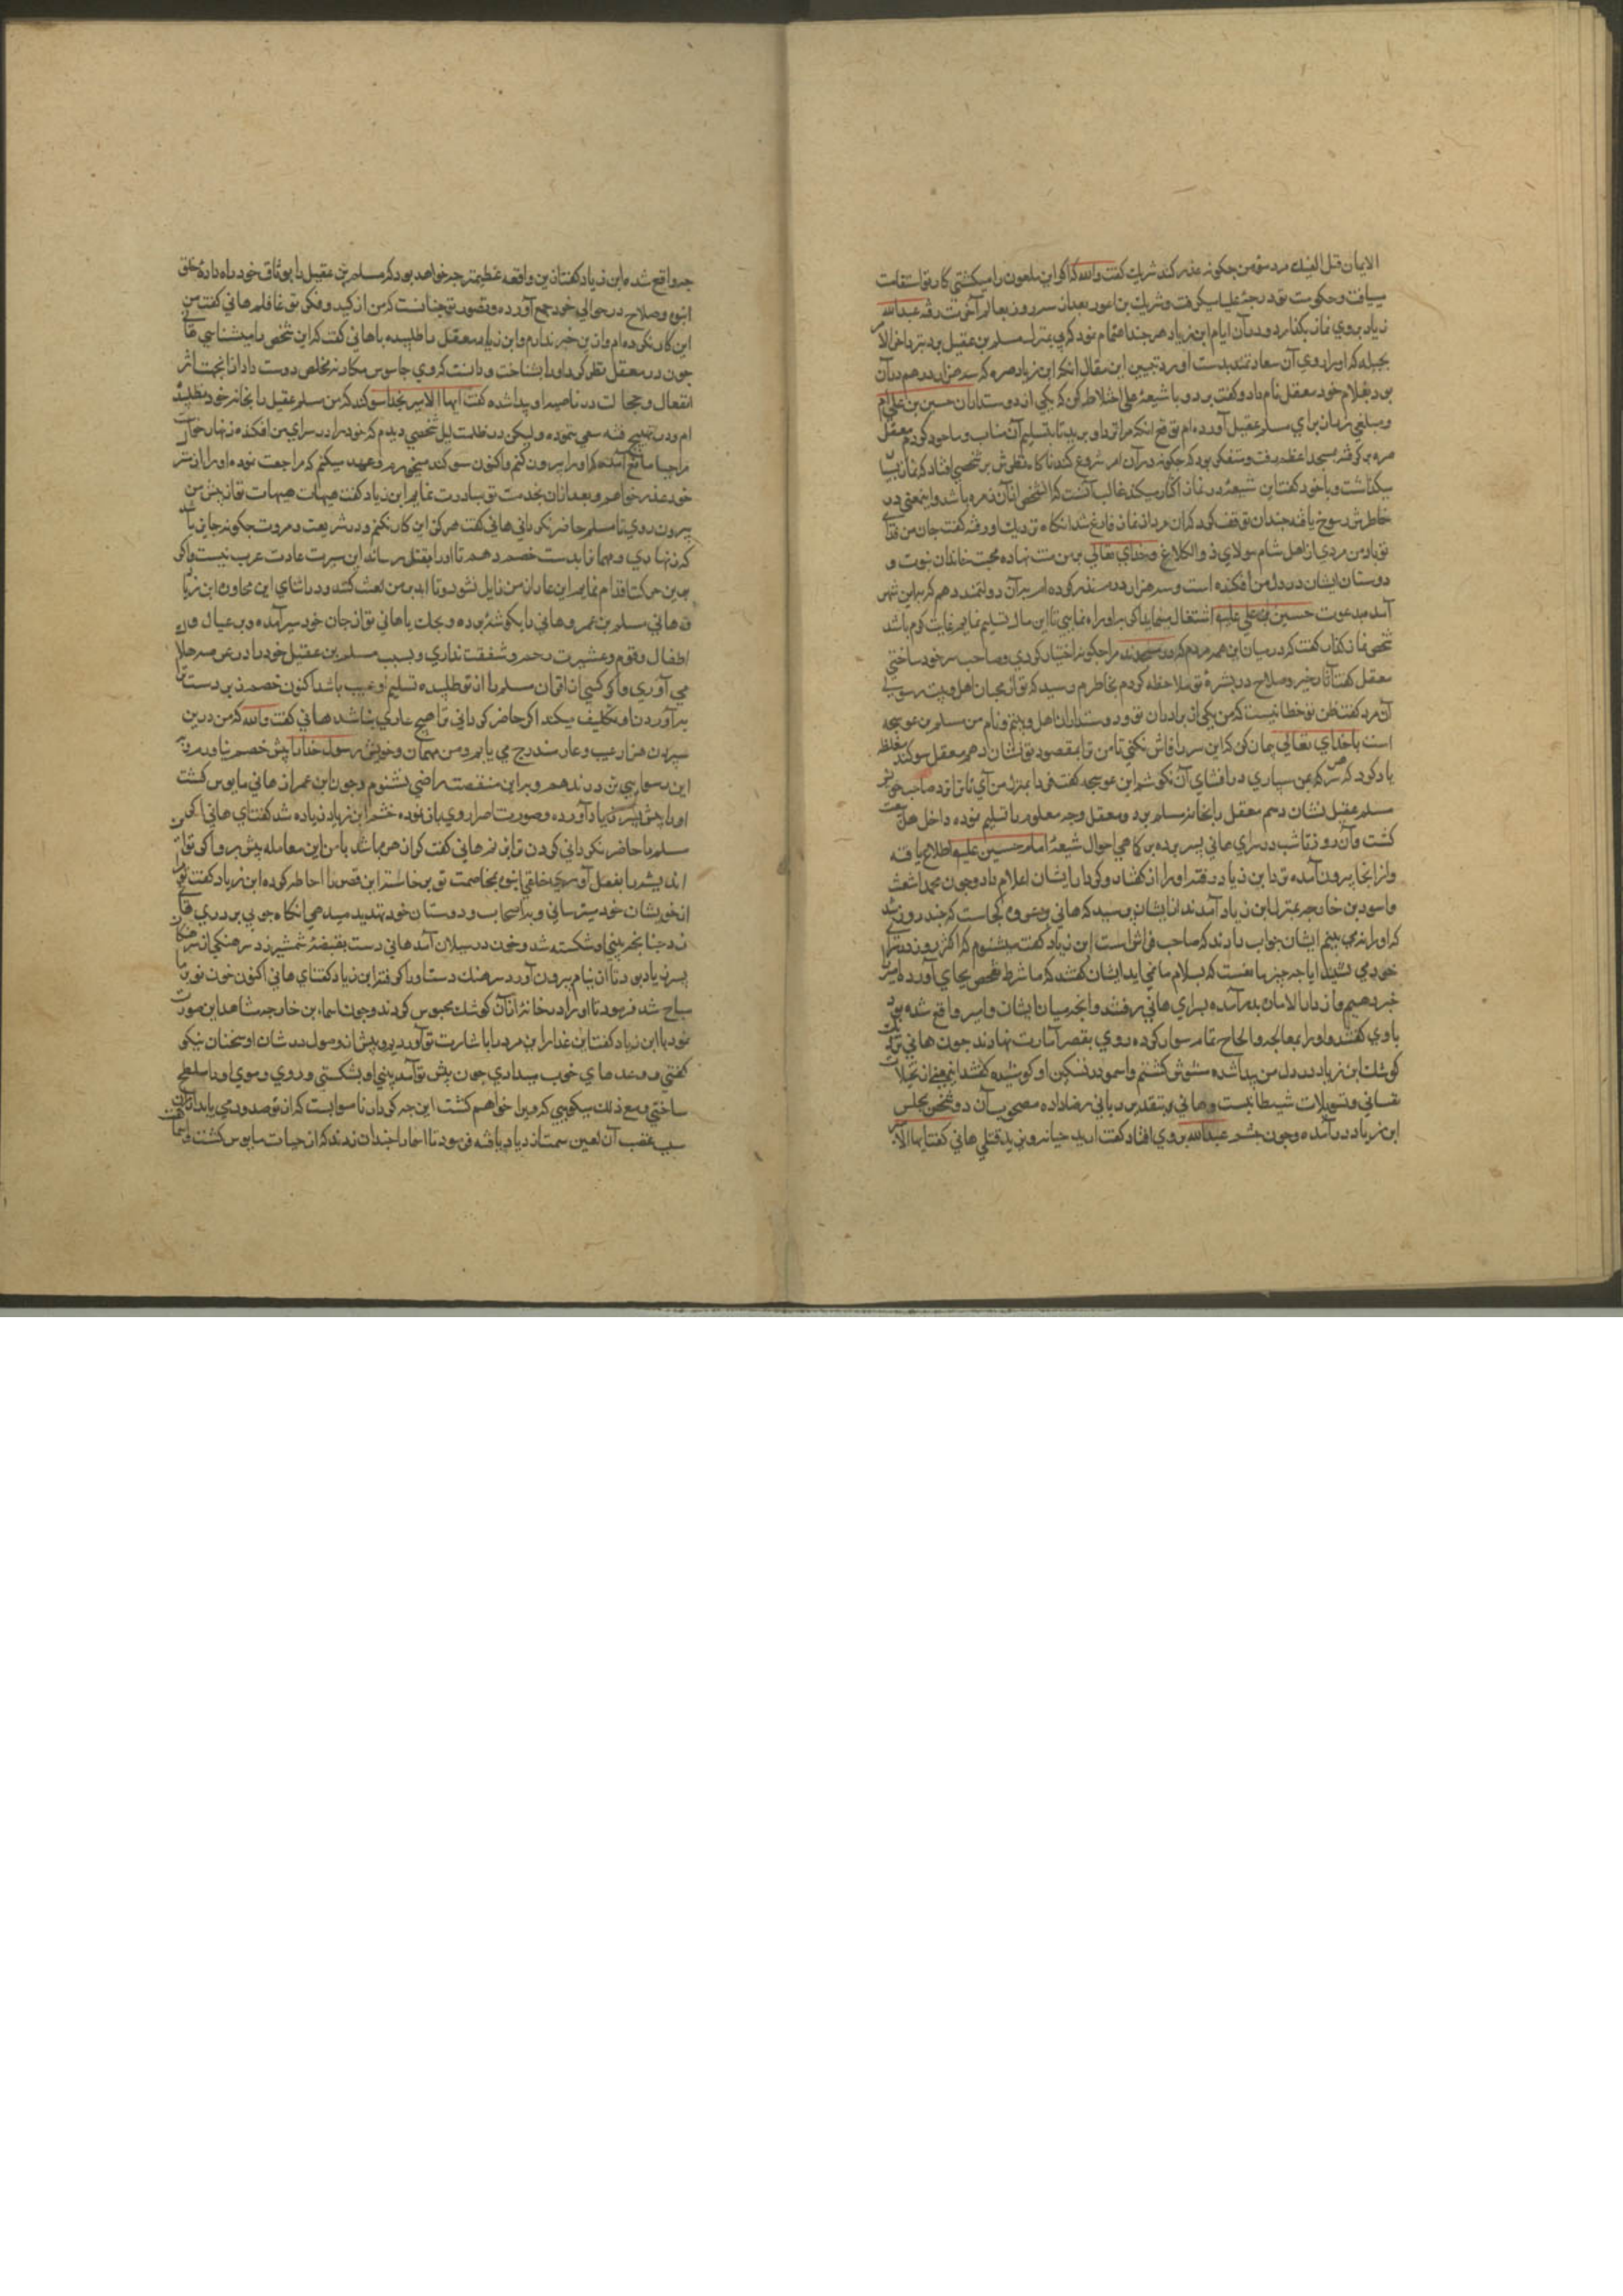 الایمان قید الفتك مرد مؤمن چکونه غدر کند شریك کفت والله که اکر این ملعون را میکشتی کار تو استقامت
مییافت و حکومت تو درجهٔ علیا میکرفت و شریك بن اعور بعد از سه روز بعالم آخرت رفته عبدالله
زیاد بر وی نماز بکذارد و در آن ایام ابن زیاد هر چند اهتمام نمود که پی بمنزل مسلم بن عقیل برد بنرد آخر الامر
بحیله که او را روی آن سعادتمند بدست آورد تبیین این مقال آنکه ابن زیاد صره که سه هزار درهم در آن
بود بغلام خود معقل نام داد و کفت برو و با شیعهٔ علی اختلاط کن که یکی از دوستداران حسین بن علی ام
و مبلغی زر از برای مسلم عقیل آورده ام توقع آنکه مرا نزد او برید تا بتسلیم آن مناب و ماجور کردم معقل
صره بر کرفته بمسجد اعظم رفت و متفکر بود که چکونه در آن امر شروع کند ناکاه نظرش بر شخصی افتاد که نماز بسیار
میکذاشت و با خود کفت این شیعهٔ در نماز اکثار میکند غالب آنست که این شخص از آن زمره باشد و این معنی در
خاطرش رسوخ یافته چندان توقف کرد که آن مرد از نماز فارغ شد آنکاه نزدیك او رفته کفت جان من فدای
تو باد من مردی از اهل شام مولای ذو الکلاع و خدای تعالی بر من منت نهاده محبت خاندان نبوت و
دوستان ایشان در دل من افکنده است و سه هزار درم نذر کرده ام بر آن دولتمند دهم که باین شهر
آمده بدعوت حسین بن علی علیه اشتغال مینماید اکر مرا باو راه نمایی تا این مال تسلیم نمایم غایت کرم باشد
شخص نماز کذار کفت که در میان این همه مردم که در مسجدند مرا چکونه اختیار کردی و صاحب سر خود ساختی
معقل کفت آثار خیر و صلاح در بشرهٔ تو ملاحظه کردم بخاطرم رسید که تو از محبان اهل بیت رسولی
آن مرد کفت ظن تو خطا نیست که من یکی از برادران تو و دوستداران اهل بیتم و نام من مسلم بن عوسجه
است با خدای تعالی پیمان کن که این سر را فاش نکنی تا من ترا بمقصود تو نشان دهم معقل سوکند مغلظ
یاد کرد که هر سر که بمن سپاری در افشای آن نکوشم ابن عوسجه کفت فردا بمنزل من آی تا ترا نزد صاحب خود
مسلم عقیل نشان دهم معقل را بخانهٔ مسلم برد و معقل وجه معلوم را تسلیم نموده داخل اهل بیعت
کشت و آن روز تا شب در سرای هانی بسر برده بر کماهی احوال شیعهٔ امام حسین علیه اطلاع یافته
و از انجا بیرون آمده نزد ابن زیاد رفته او را از کفتار و کردار ایشان اعلام داد و چون محمد اشعث
و اسود بن خارجه بمنزل ابن زیاد آمدند از ایشان پرسید که هانی بن عروه کجاست که چند روز شد
که او را نمی بینم ایشان جواب دادند که صاحب فراش است ابن زیاد کفت میشنوم که اکثر روز در سرای
خود می نشیند آیا چه چیز مانعست که بسلام ما نمی آید ایشان کفتند که ما شرط تفحص بجای آورده امیر را
خبر دهیم و از دار الاماره بدر آمده بسرای هانی رفتند و آنچه میان ایشان و امیر واقع شده بود
با وی کفتند و او را بمبالغه و الحاح تمام سوار کرده روی بقصر امارت نهادند چون هانی نزدیك
کوشك ابن زیاد در دل من پیدا شده مشوش کشتم و اسود در تسکین او کوشیده کفتند این معنی از تخیلات
نفسانی و تسویلات شیطانیست و هانی بتقدیر ربانی رضا داده مصحوب آن دو شخص بمجلس
ابن زیاد در آمده و چون چشم عبدالله بر وی افتاد کفت ارید حیاته و یرید قتلی هانی کفت ایها الامیر
چه واقع شده ابن زیاد کفت ازین واقعه عظیمتر چه خواهد بود که مسلم بن عقیل را بوثاق خود راه داده خلق
انبوه و صلاح در حوالی خود جمع آورده و تصور تو چنانست که من از کید و فکر تو غافلم هانی کفت من
این کار نکرده ام و ازین خبر ندارم و ابن زیاد معقل را طلبیده با هانی کفت که این شخص را میشناسی هانی
چون در معقل نظر کرد او را بشناخت و دانست که وی جاسوس مکار نه مخلص دوست دار از آنجهت اثر
انفعال و خجالت در ناصیهٔ او پیدا شده کفت ایها الامیر بخدا سوکند که من مسلم عقیل را بخانهٔ خود نطلبیده
ام و در تهییج فتنه سعی ننموده و لیکن در ظلمت لیل شخصی دیدم که خود را در سرای من افکنده زنهار خواست
مرا حیا مانع آمد که او را بیرون کنم و اکنون سوکند میخورم و عهد میکنم که مراجعت نموده او را از منزل
خود عذر خواهم و بعد از آن بخدمت تو مبادرت نمایم ابن زیاد کفت هیهات هیهات تو از پیش من
بیرون روی تا مسلم حاضر نکردانی هانی کفت هرکز این کار نکنم و در شریعت و مروت چکونه جایز باشد
که زنهاری و مهمان را بدست خصم دهم تا او را بقتل رساند این سیرت عادت عرب نیست و اکر
برین حرکت اقدام نمایم این عار از من زایل نشود و تا ابد بر من لعنت کنند و در اثنای این محاوره ابن زیاد
و هانی مسلم بن عمرو هانی را بکوشهٔ برده و بجلت یا هانی تو از جان خود سیر آمده و بر عیال و
اطفال و قوم و عشیرت رحم و شفقت نداری و بسبب مسلم بن عقیل خود را در عرصهٔ هلاك
می آوری و اکر کسی از اقران مسلم را از تو طلبیده تسلیم او عیب باشد اکنون خصم زبردست
بر آوردن او تکلیف میکند اکر حاضر کردانی ترا هیچ عاری نباشد هانی کفت والله که من درین
سپردن هزار عیب و عار مندرج می یابم و من مهمان و خویش رسول خدا را پیش خصم نیاورم و
این رسوایی تن در ندهم و بر این منقصت راضی نشوم و چون ابن عمر از هانی مایوس کشت
او را پیش پسر زیاد آورده و صورت اصرار وی باز نموده خشم ابن زیاد زیاده شد کفت ای هانی اکر
مسلم را حاضر نکردانی کردن ترا بزنم هانی کفت کرا زهره باشد با من این معامله پیش برد و اکر تو این
اندیشه را بفعل آوری خلقی انبوه بمخاصمت تو برخاسته این قصر را احاطه کرده ابن زیاد کفت تو مرا
از خویشان خود میترسانی و بر اصحاب و دوستان خود تهدید میدهی آنکاه چوبی بر روی هانی
زد چنانچه بینی او شکسته شد و خون در سیلان آمد هانی دست بقبضهٔ شمشیر زد سرهنکی از سرهنکان
پسر زیاد بود تا از نیام بیرون آورد سرهنك دست او را کرفته ابن زیاد کفت ای هانی اکنون خون تو بر ما
مباح شد فرمود تا او را در خانهٔ از آن کوشك محبوس کردند و چون اسماء بن خارجه مشاهد این صورت
نمود با ابن زیاد کفت ای غدار این مرد را باشارت تو آوردیم و پیش از وصول در شان او سخنان نیکو
کفتی و وعدهای خوب میدادی چون پیش تو آمد بینی او بشکستی و روی و موی او را ملطخ
ساختی و مع ذلك میکویی که ویرا خواهم کشت این چه کردار ناصوابست که از تو صدور می یابد ازین
سبب غضب آن لعین سمت ازدیاد یافته فرمود تا اخار را چندان زدند که از حیات مایوس کشت و اسما